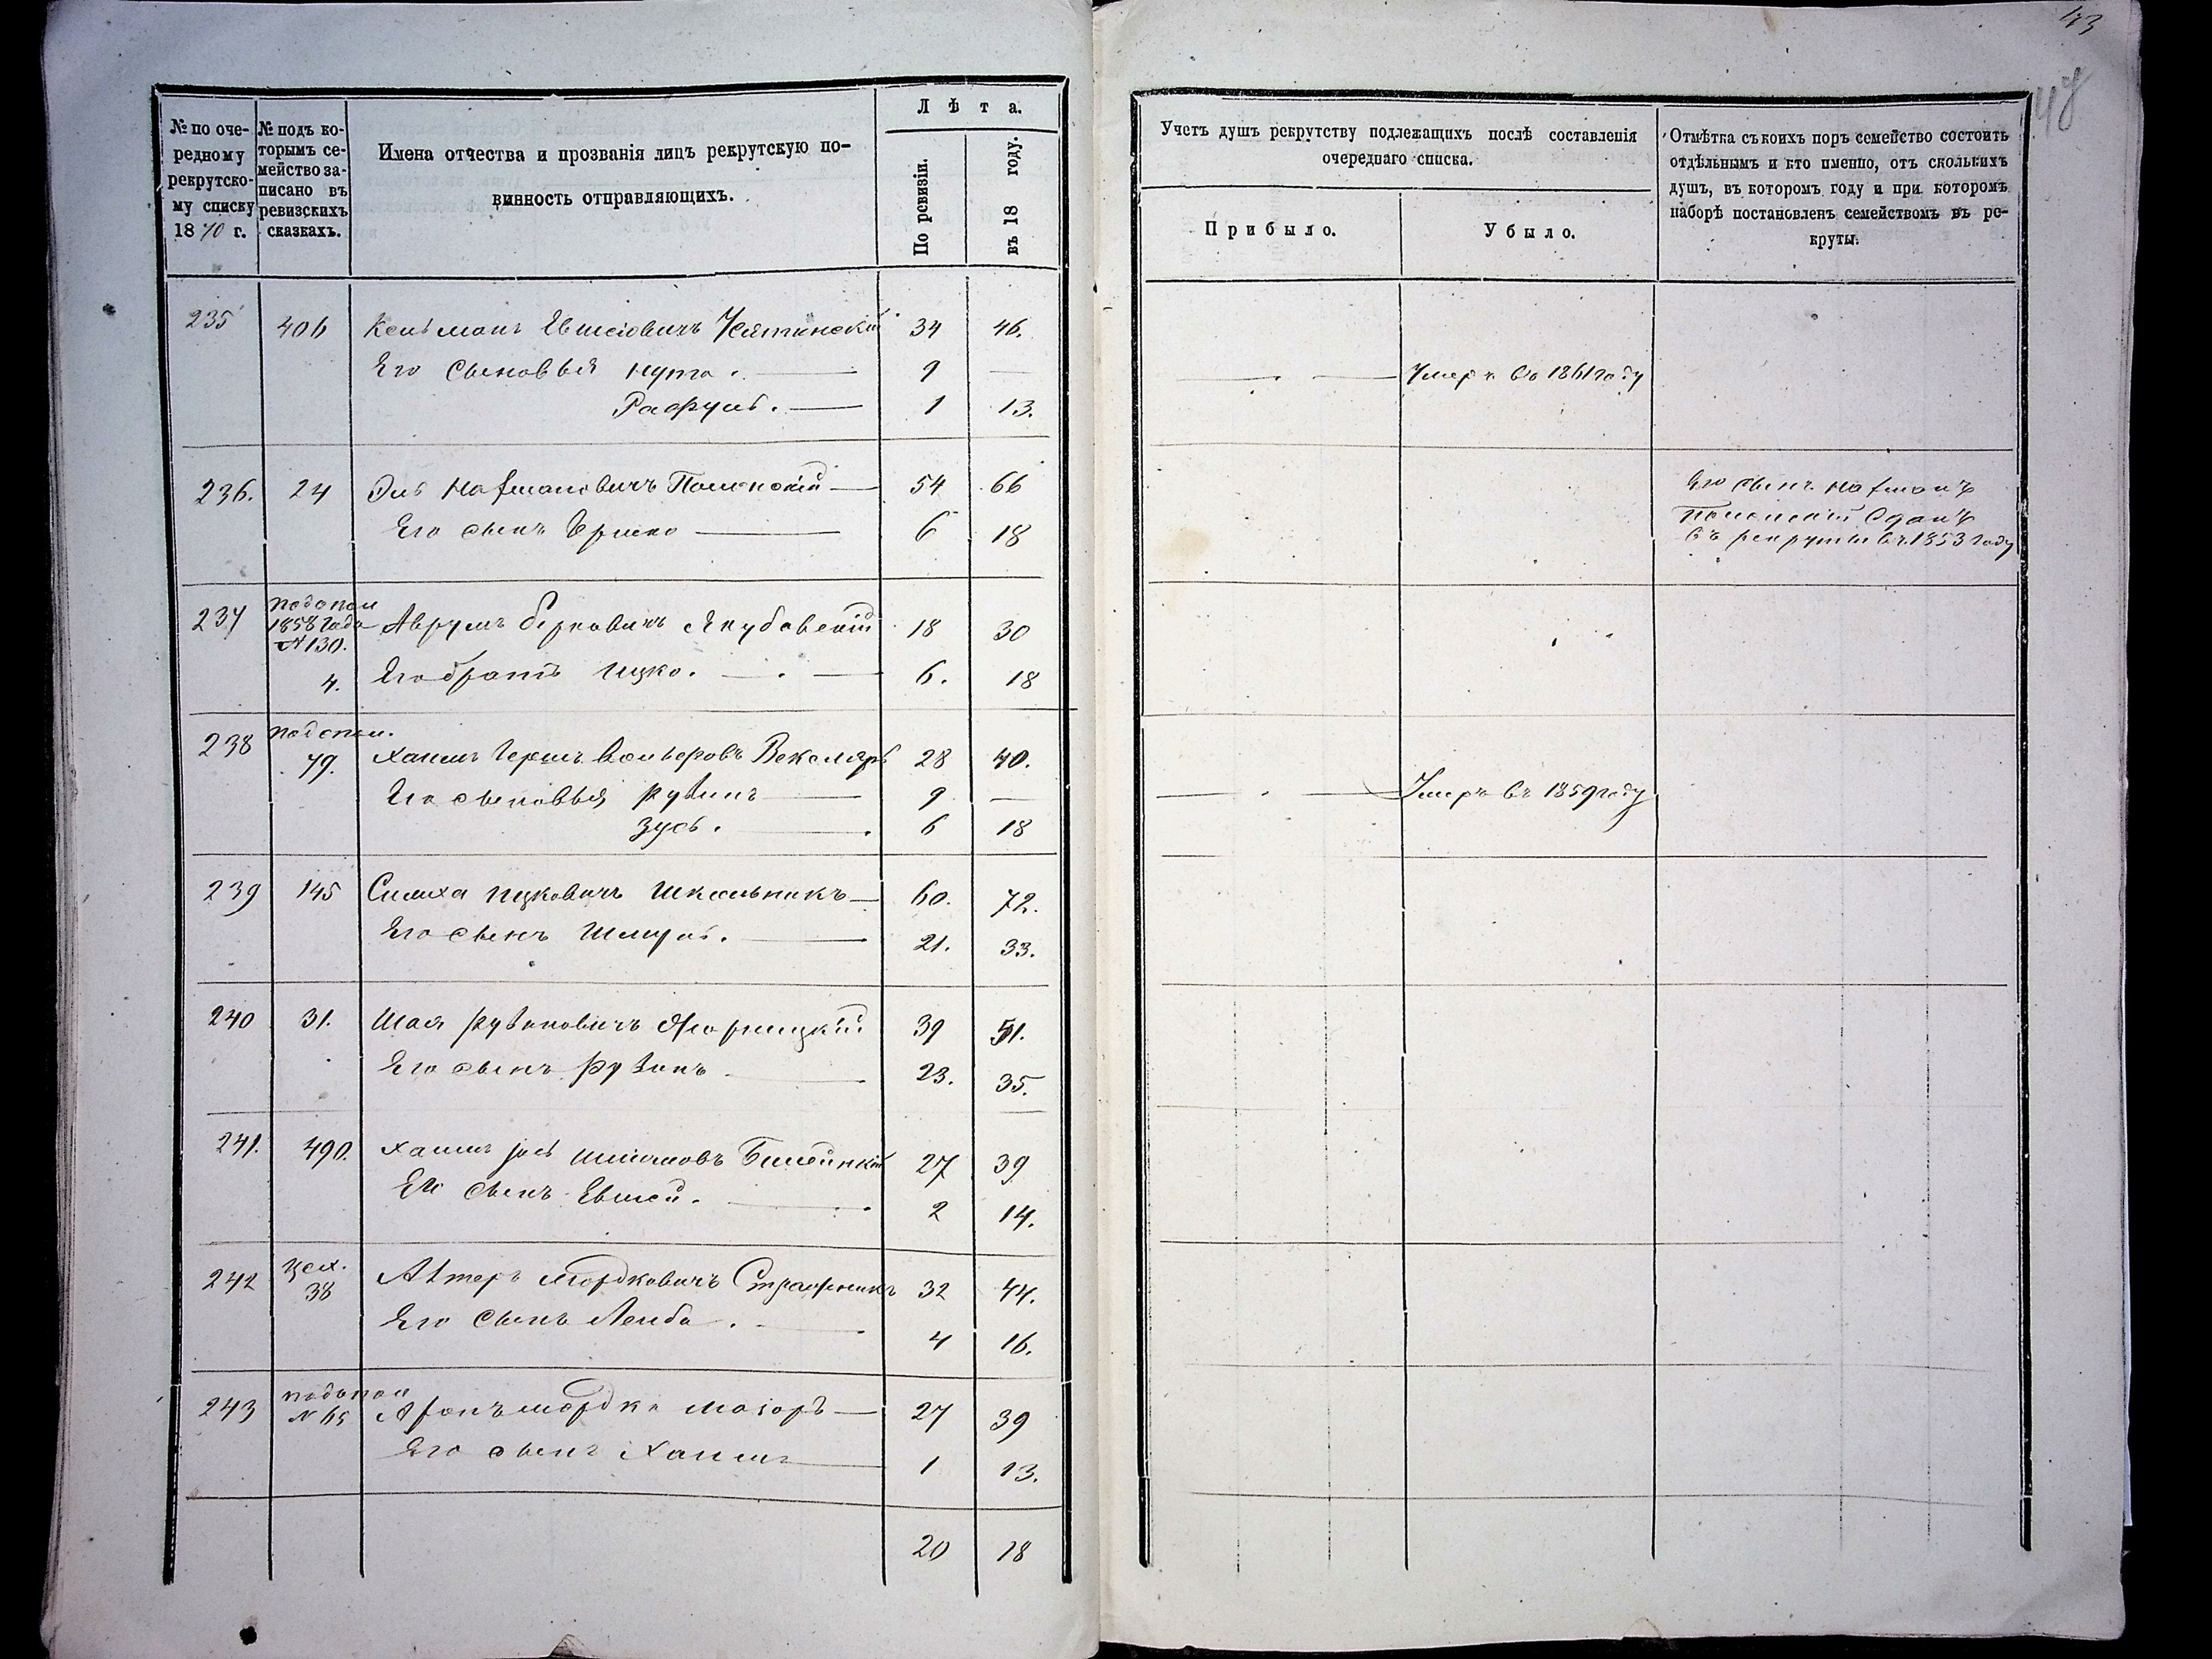 43
№ по оче-
редному
рекрутско-
му списку
1870 г.
№ подъ ко-
торымъ се-
мейство за-
писано въ
ревизскихъ
сказкахъ.
Имена отчества и прозванія лицъ рекрутскую по-
винность отправляющихъ.
Лѣта.
По ревизіи.
въ 18 году.
Учетъ душъ рекрутству подлежащихъ послѣ составленія
очереднаго списка.
Прибыло.
Убыло.
Отмѣтка съ коихъ поръ семейство состоитъ
отдѣльнымъ и кто именно, отъ сколькихъ
душъ, въ которомъ году и при которомъ
наборѣ постановленъ семействомъ въ ре-
круты.
235 406 Кельманъ 34 46.
Его сыновья Нута. 9 — Умеръ въ 1861 году
Рафуль. 1 13.
236. 24 Эль Нахмановичъ Полонскій 54 66
Его сынъ Гершко 6 18
Его сынъ Нахманъ
Полонскій Сданъ
въ рекруты въ 1853 году
237 по допол 1858 года №130. Аврумъ Берковичъ Якубовскій 18 30
4. Его братъ Ицко. 6. 18
238 по допол. 79. Хаимъ Гершъ Векслеръ 28 40.
Его сыновья Рувинъ 9 — Умеръ въ 1859 году
Зусь. 6 18
239 145 Симха Ицковичъ Школьникъ 60. 72.
Его сынъ Шмуль. 21. 33.
240 31. Шая Рувиновичъ 39 51.
Его сынъ Рувинъ 23. 35.
241. 490. Хаимъ 27 39
Его сынъ Евшей. 2 14.
242 цех. 38 Алтеръ Мордковичъ 32 44.
Его сынъ Лейба. 4 16.
243 по допол № 65 Аронъ Мордко Мазоръ 27 39
Его сынъ Хаимъ 1 13.
20 18